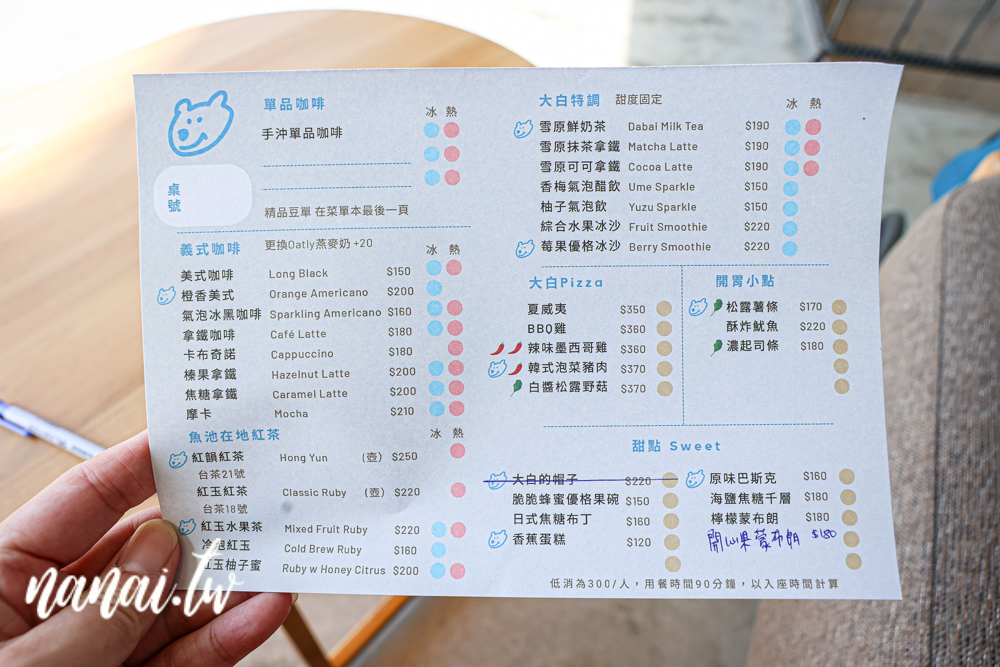 單品咖啡
冰 熱
手沖單品咖啡
桌號
精品豆單 在菜單本最後一頁
義式咖啡 更換Oatly燕麥奶 +20
冰 熱
美式咖啡 Long Black $150
橙香美式 Orange Americano $200
氣泡冰黑咖啡 Sparkling Americano $160
拿鐵咖啡 Café Latte $180
卡布奇諾 Cappuccino $180
榛果拿鐵 Hazelnut Latte $200
焦糖拿鐵 Caramel Latte $200
摩卡 Mocha $210
魚池在地紅茶
冰 熱
紅韻紅茶 Hong Yun (壺) $250
台茶21號
紅玉紅茶 Classic Ruby (壺) $220
台茶18號
紅玉水果茶 Mixed Fruit Ruby $220
紅玉 Cold Brew Ruby $160
紅玉柚子蜜 Ruby w Honey Citrus $200
大白特調 甜度固定
冰 熱
雪原鮮奶茶 Dabai Milk Tea $190
雪原抹茶拿鐵 Matcha Latte $190
雪原可可拿鐵 Cocoa Latte $190
香梅氣泡醋飲 Ume Sparkle $150
柚子氣泡飲 Yuzu Sparkle $150
綜合水果冰沙 Fruit Smoothie $220
莓果優格冰沙 Berry Smoothie $220
大白Pizza
夏威夷 $350
BBQ雞 $360
辣味墨西哥雞 $360
韓式泡菜豬肉 $370
白醬松露野菇 $370
開胃小點
松露薯條 $170
酥炸魷魚 $220
濃起司條 $180
甜點 Sweet
大白的帽子 $220
脆脆蜂蜜優格果碗 $150
日式焦糖布丁 $160
香蕉蛋糕 $120
原味巴斯克 $160
海鹽焦糖千層 $180
檸檬蒙布朗 $180
開心果蒙布朗 $180
低消為300/人，用餐時間90分鐘，以入座時間計算
nanai.tw